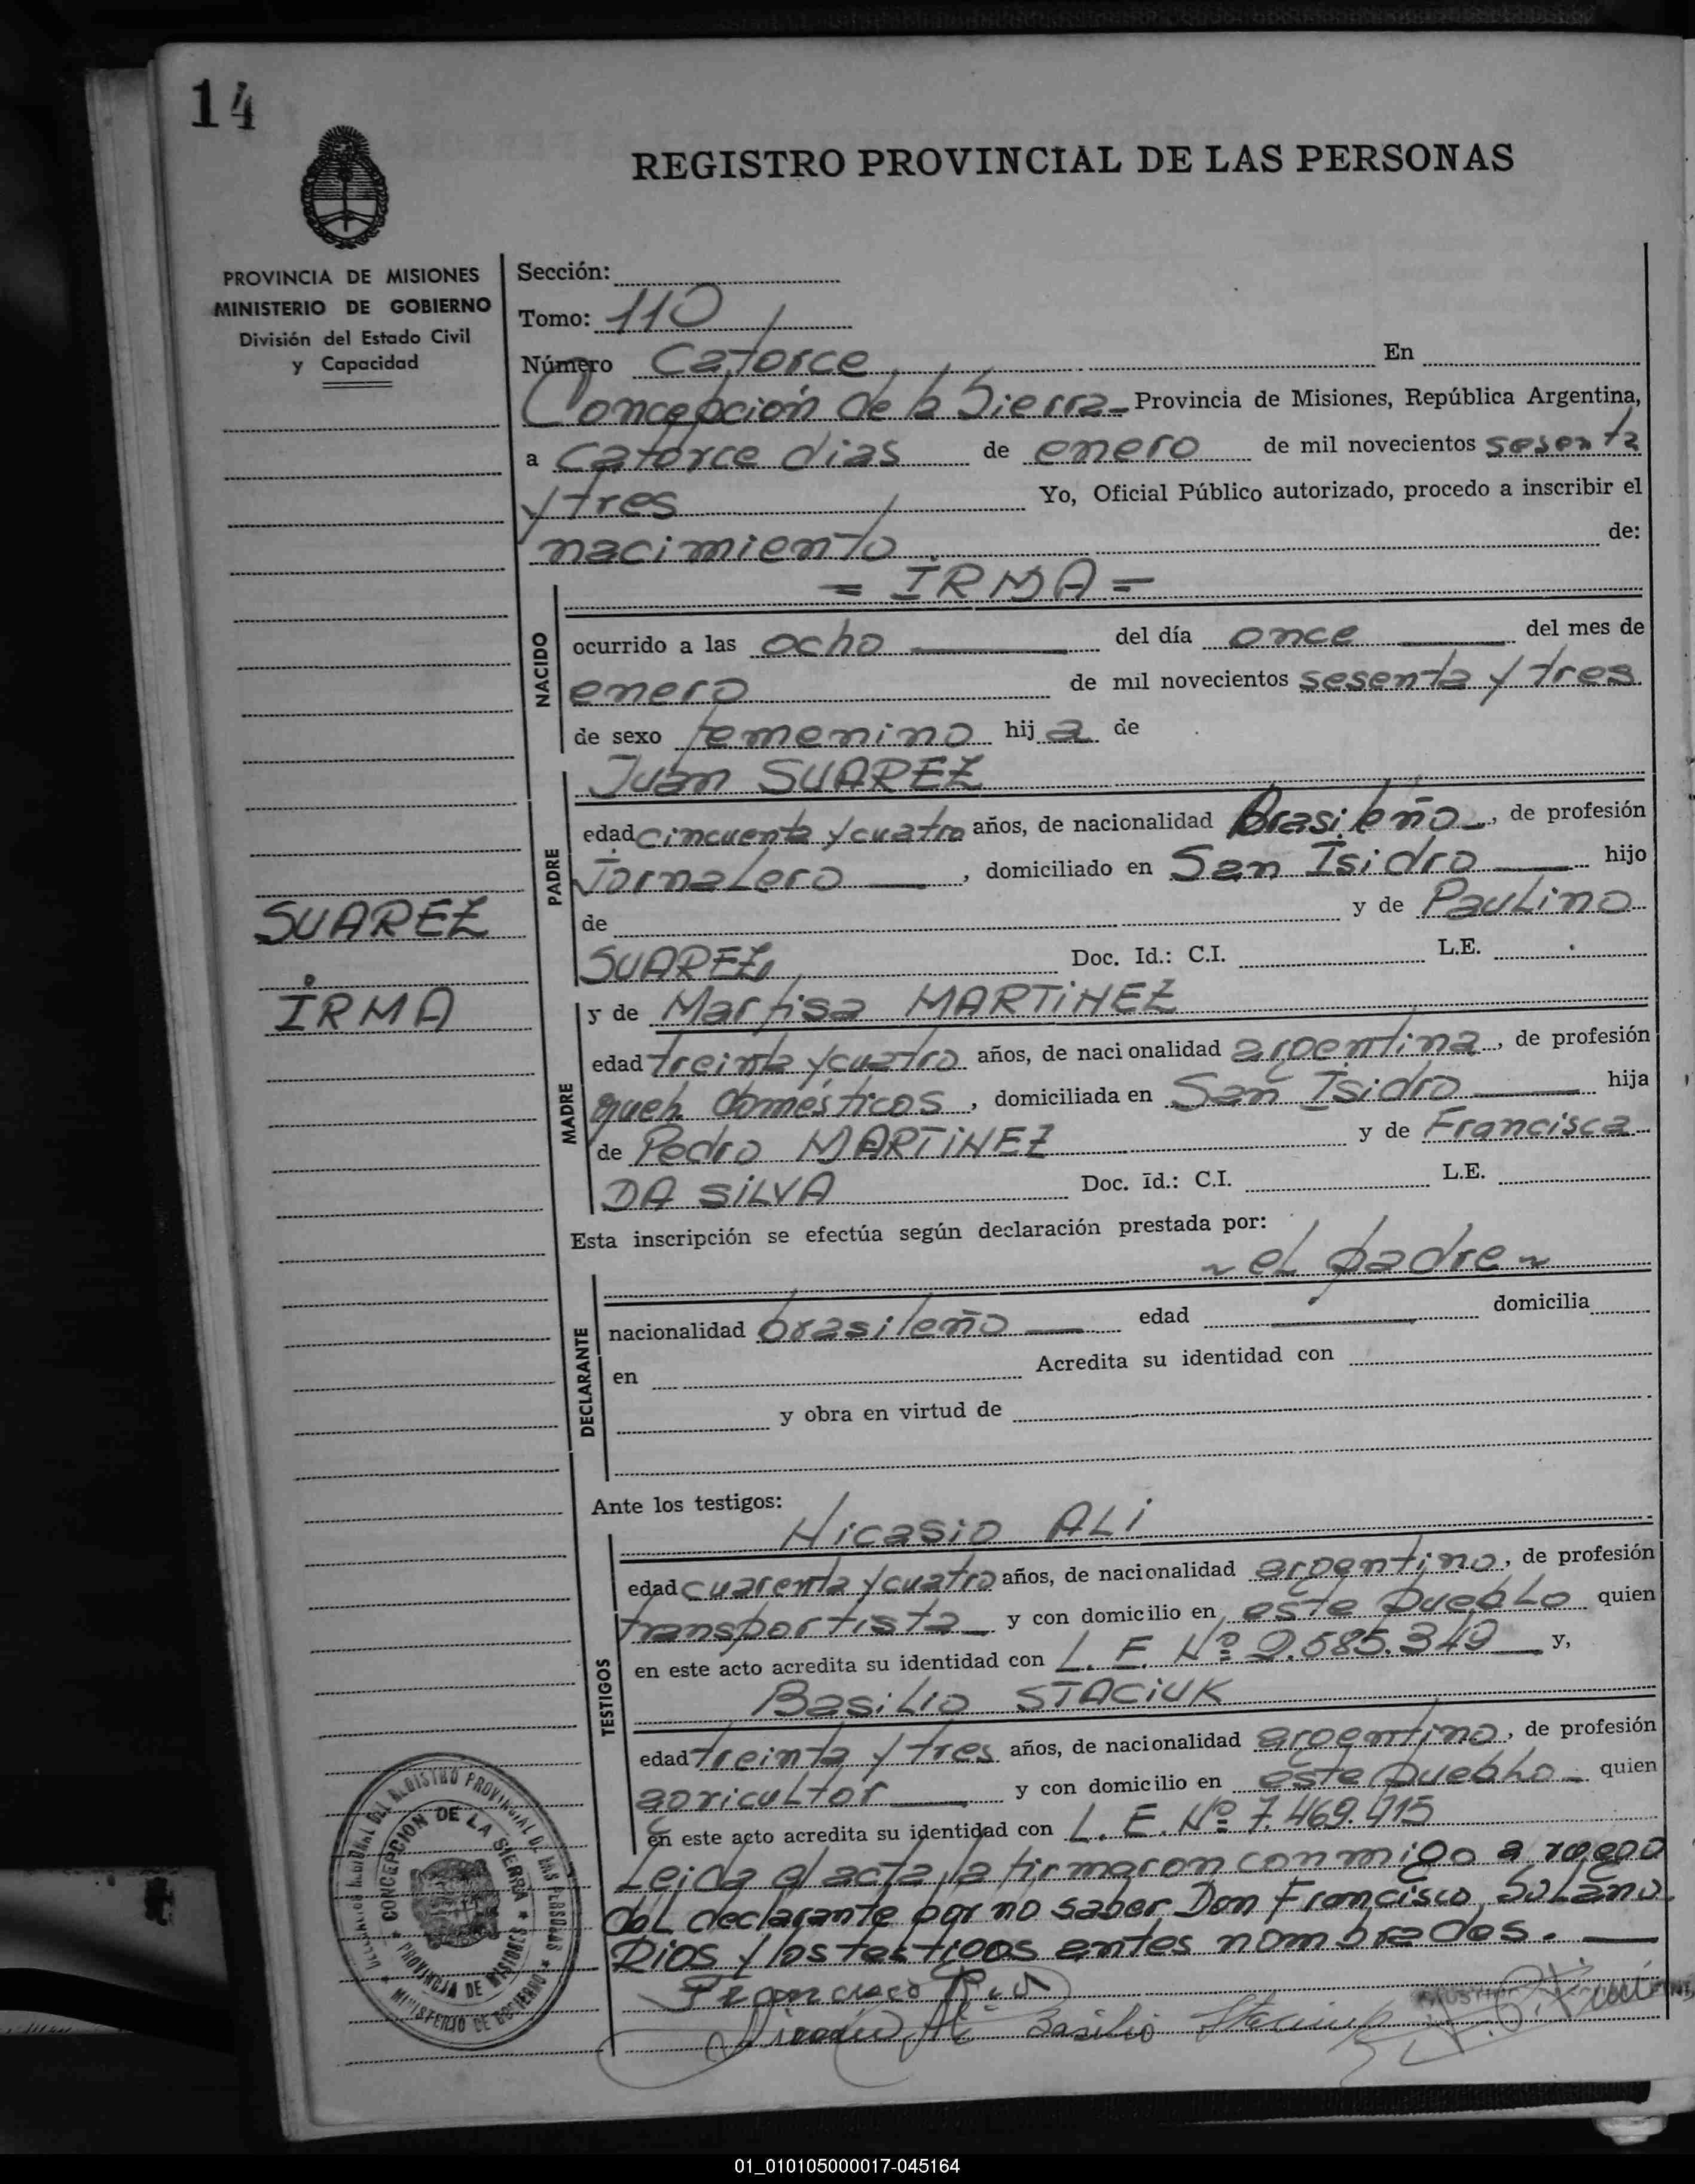 14
REGISTRO PROVINCIAL DE LAS PERSONAS
PROVINCIA DE MISIONES
MINISTERIO DE GOBIERNO
División del Estado Civil
y Capacidad
Sección:
Tomo: 110
Número Catorce En
Concepción de la Sierra - Provincia de Misiones, República Argentina,
a catorce dias de enero de mil novecientos sesenta
y tres Yo, Oficial Público autorizado, procedo a inscribir el
nacimiento de:
= IRMA =
NACIDO
ocurrido a las ocho del día once del mes de
enero de mil novecientos sesenta y tres
de sexo femenino hija de
Juan SUAREZ
PADRE
edad cincuenta y cuatro años, de nacionalidad brasileño, de profesión
Jornalero, domiciliado en San Isidro hijo
de y de Paulino
SUAREZ Doc. Id.: C.I. L.E.
SUAREZ
IRMA
MADRE
y de Martisa MARTINEZ
edad treinta y cuatro años, de nacionalidad argentina, de profesión
queh domésticos, domiciliada en San Isidro hija
de Pedro MARTINEZ y de Francisca
DA SILVA Doc. Id.: C.I. L.E.
Esta inscripción se efectúa según declaración prestada por:
~ el padre ~
DECLARANTE
nacionalidad brasileño edad domicilia
en Acredita su identidad con
y obra en virtud de
Ante los testigos:
Nicasio ALI
TESTIGOS
edad cuarenta y cuatro años, de nacionalidad argentino, de profesión
transportista y con domicilio en este Pueblo quien
en este acto acredita su identidad con L. E. Nº 2.585.349 y,
Basilio STACIUK
edad treinta y tres años, de nacionalidad argentino, de profesión
agricultor y con domicilio en este Pueblo quien
en este acto acredita su identidad con L. E. Nº 7.469.915
Leida el acta, la firmaron conmigo a ruego
del declarante por no saber Don Francisco Solano
Rios y los testigos antes nombrados.
Francisco Rios
Nicasio Ali Basilio Staciuk
REGISTRO PROVINCIAL DE LAS PERSONAS
CONCEPCION DE LA SIERRA
PROVINCIA DE MISIONES
MINISTERIO DE GOBIERNO
01_010105000017-045164